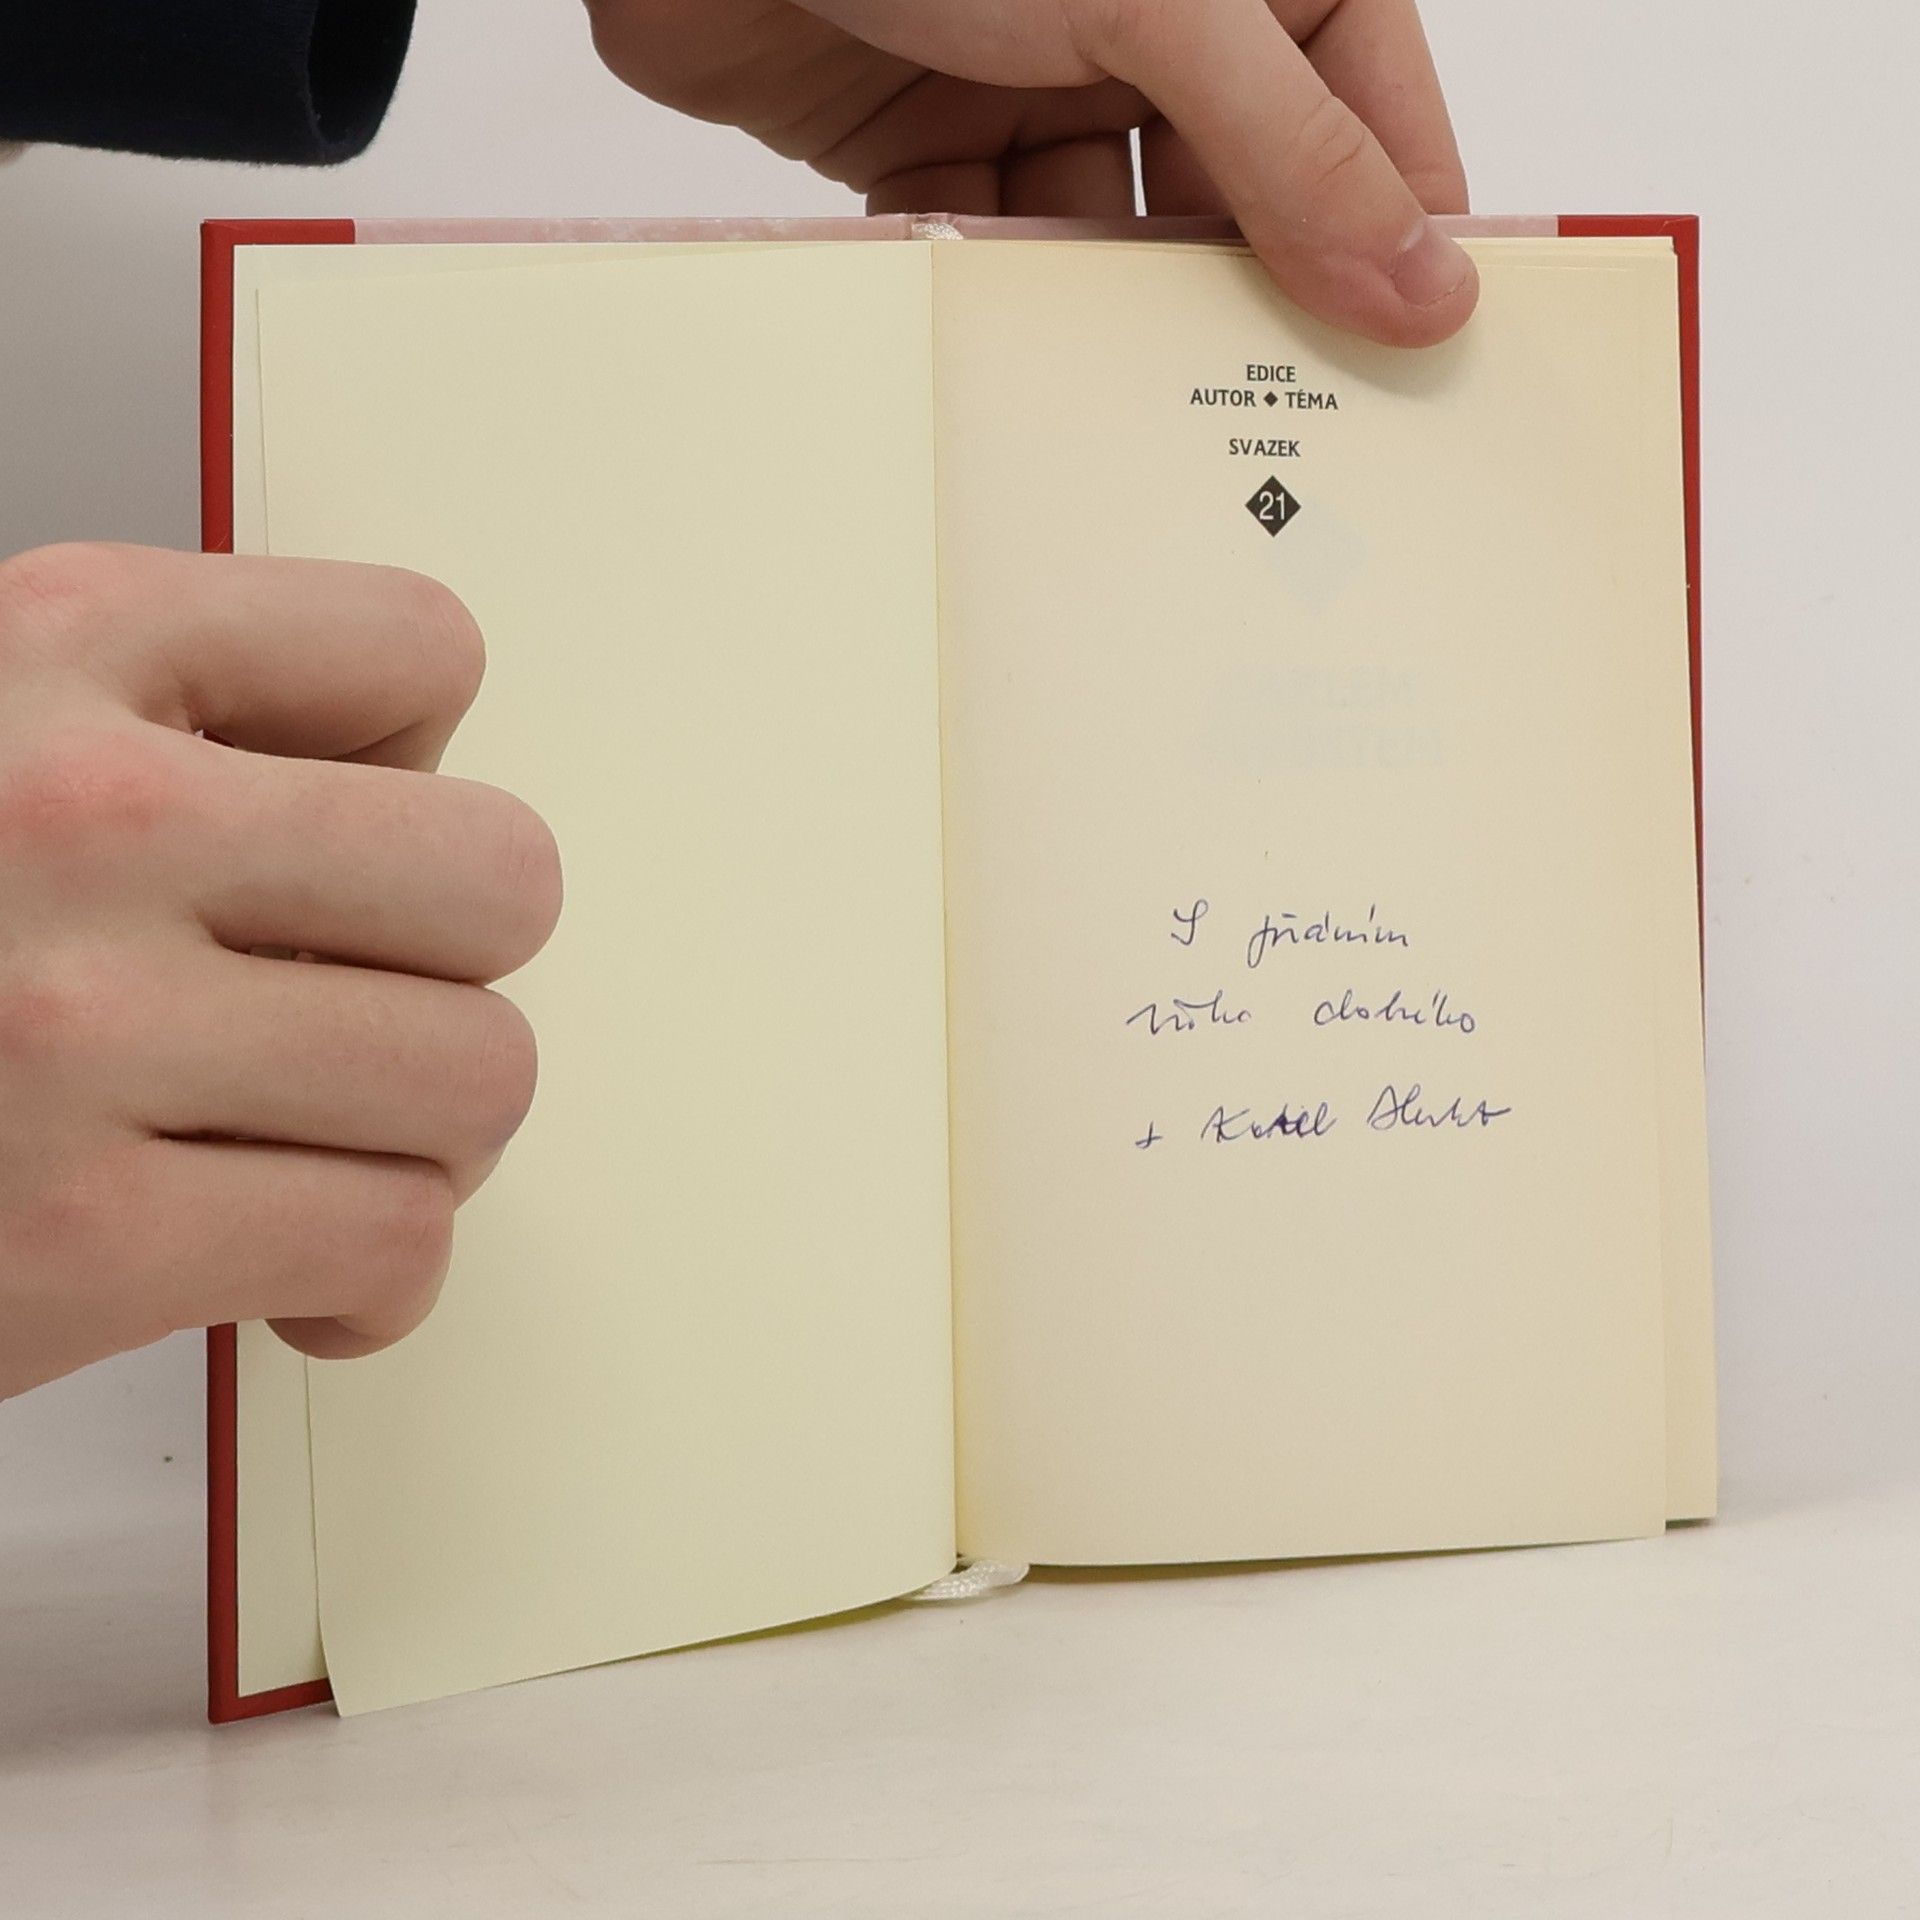 EDICE
AUTOR ◆ TÉMA
SVAZEK
21
S přáním
všeho dobrého
+ Karel Herbst